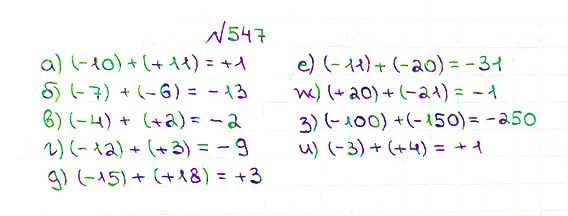 №547
а) (-10) + (+11) = +1
б) (-7) + (-6) = -13
в) (-4) + (+2) = -2
г) (-12) + (+3) = -9
д) (-15) + (+18) = +3
е) (-11) + (-20) = -31
ж) (+20) + (-21) = -1
з) (-100) + (-150) = -250
и) (-3) + (+4) = +1